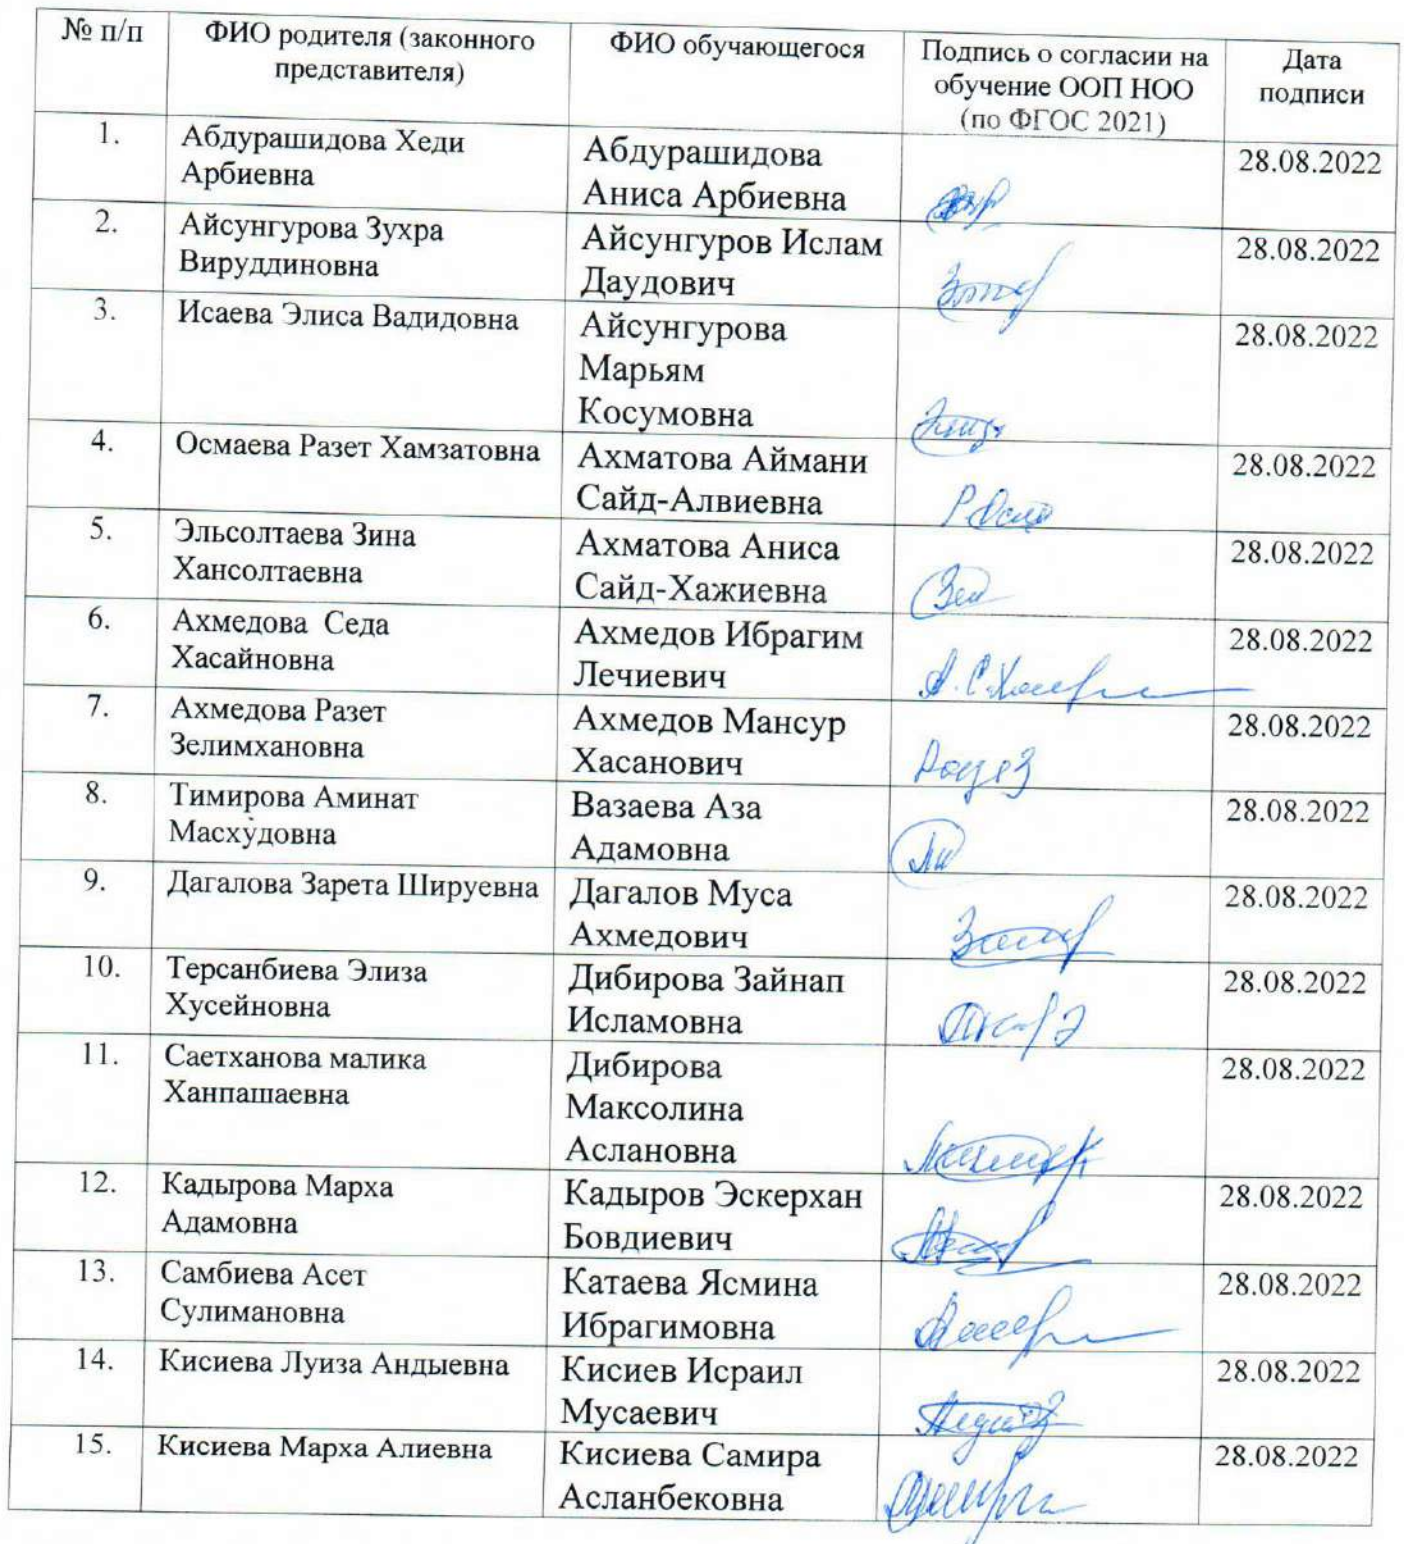 № п/п
ФИО родителя (законного
представителя)
ФИО обучающегося
Подпись о согласии на
обучение ООП НОО
(по ФГОС 2021)
Дата
подписи
1.
Абдурашидова Хеди
Арбиевна
Абдурашидова
Аниса Арбиевна
28.08.2022
2.
Айсунгурова Зухра
Вируддиновна
Айсунгуров Ислам
Даудович
28.08.2022
3.
Исаева Элиса Вадидовна
Айсунгурова
Марьям
Косумовна
28.08.2022
4.
Осмаева Разет Хамзатовна
Ахматова Аймани
Сайд-Алвиевна
28.08.2022
5.
Эльсолтаева Зина
Хансолтаевна
Ахматова Аниса
Сайд-Хажиевна
28.08.2022
6.
Ахмедова Седа
Хасайновна
Ахмедов Ибрагим
Лечиевич
28.08.2022
7.
Ахмедова Разет
Зелимхановна
Ахмедов Мансур
Хасанович
28.08.2022
8.
Тимирова Аминат
Масхудовна
Вазаева Аза
Адамовна
28.08.2022
9.
Дагалова Зарета Шируевна
Дагалов Муса
Ахмедович
28.08.2022
10.
Терсанбиева Элиза
Хусейновна
Дибирова Зайнап
Исламовна
28.08.2022
11.
Саетханова малика
Ханпашаевна
Дибирова
Максолина
Аслановна
28.08.2022
12.
Кадырова Марха
Адамовна
Кадыров Эскерхан
Бовдиевич
28.08.2022
13.
Самбиева Асет
Сулимановна
Катаева Ясмина
Ибрагимовна
28.08.2022
14.
Кисиева Луиза Андыевна
Кисиев Исраил
Мусаевич
28.08.2022
15.
Кисиева Марха Алиевна
Кисиева Самира
Асланбековна
28.08.2022